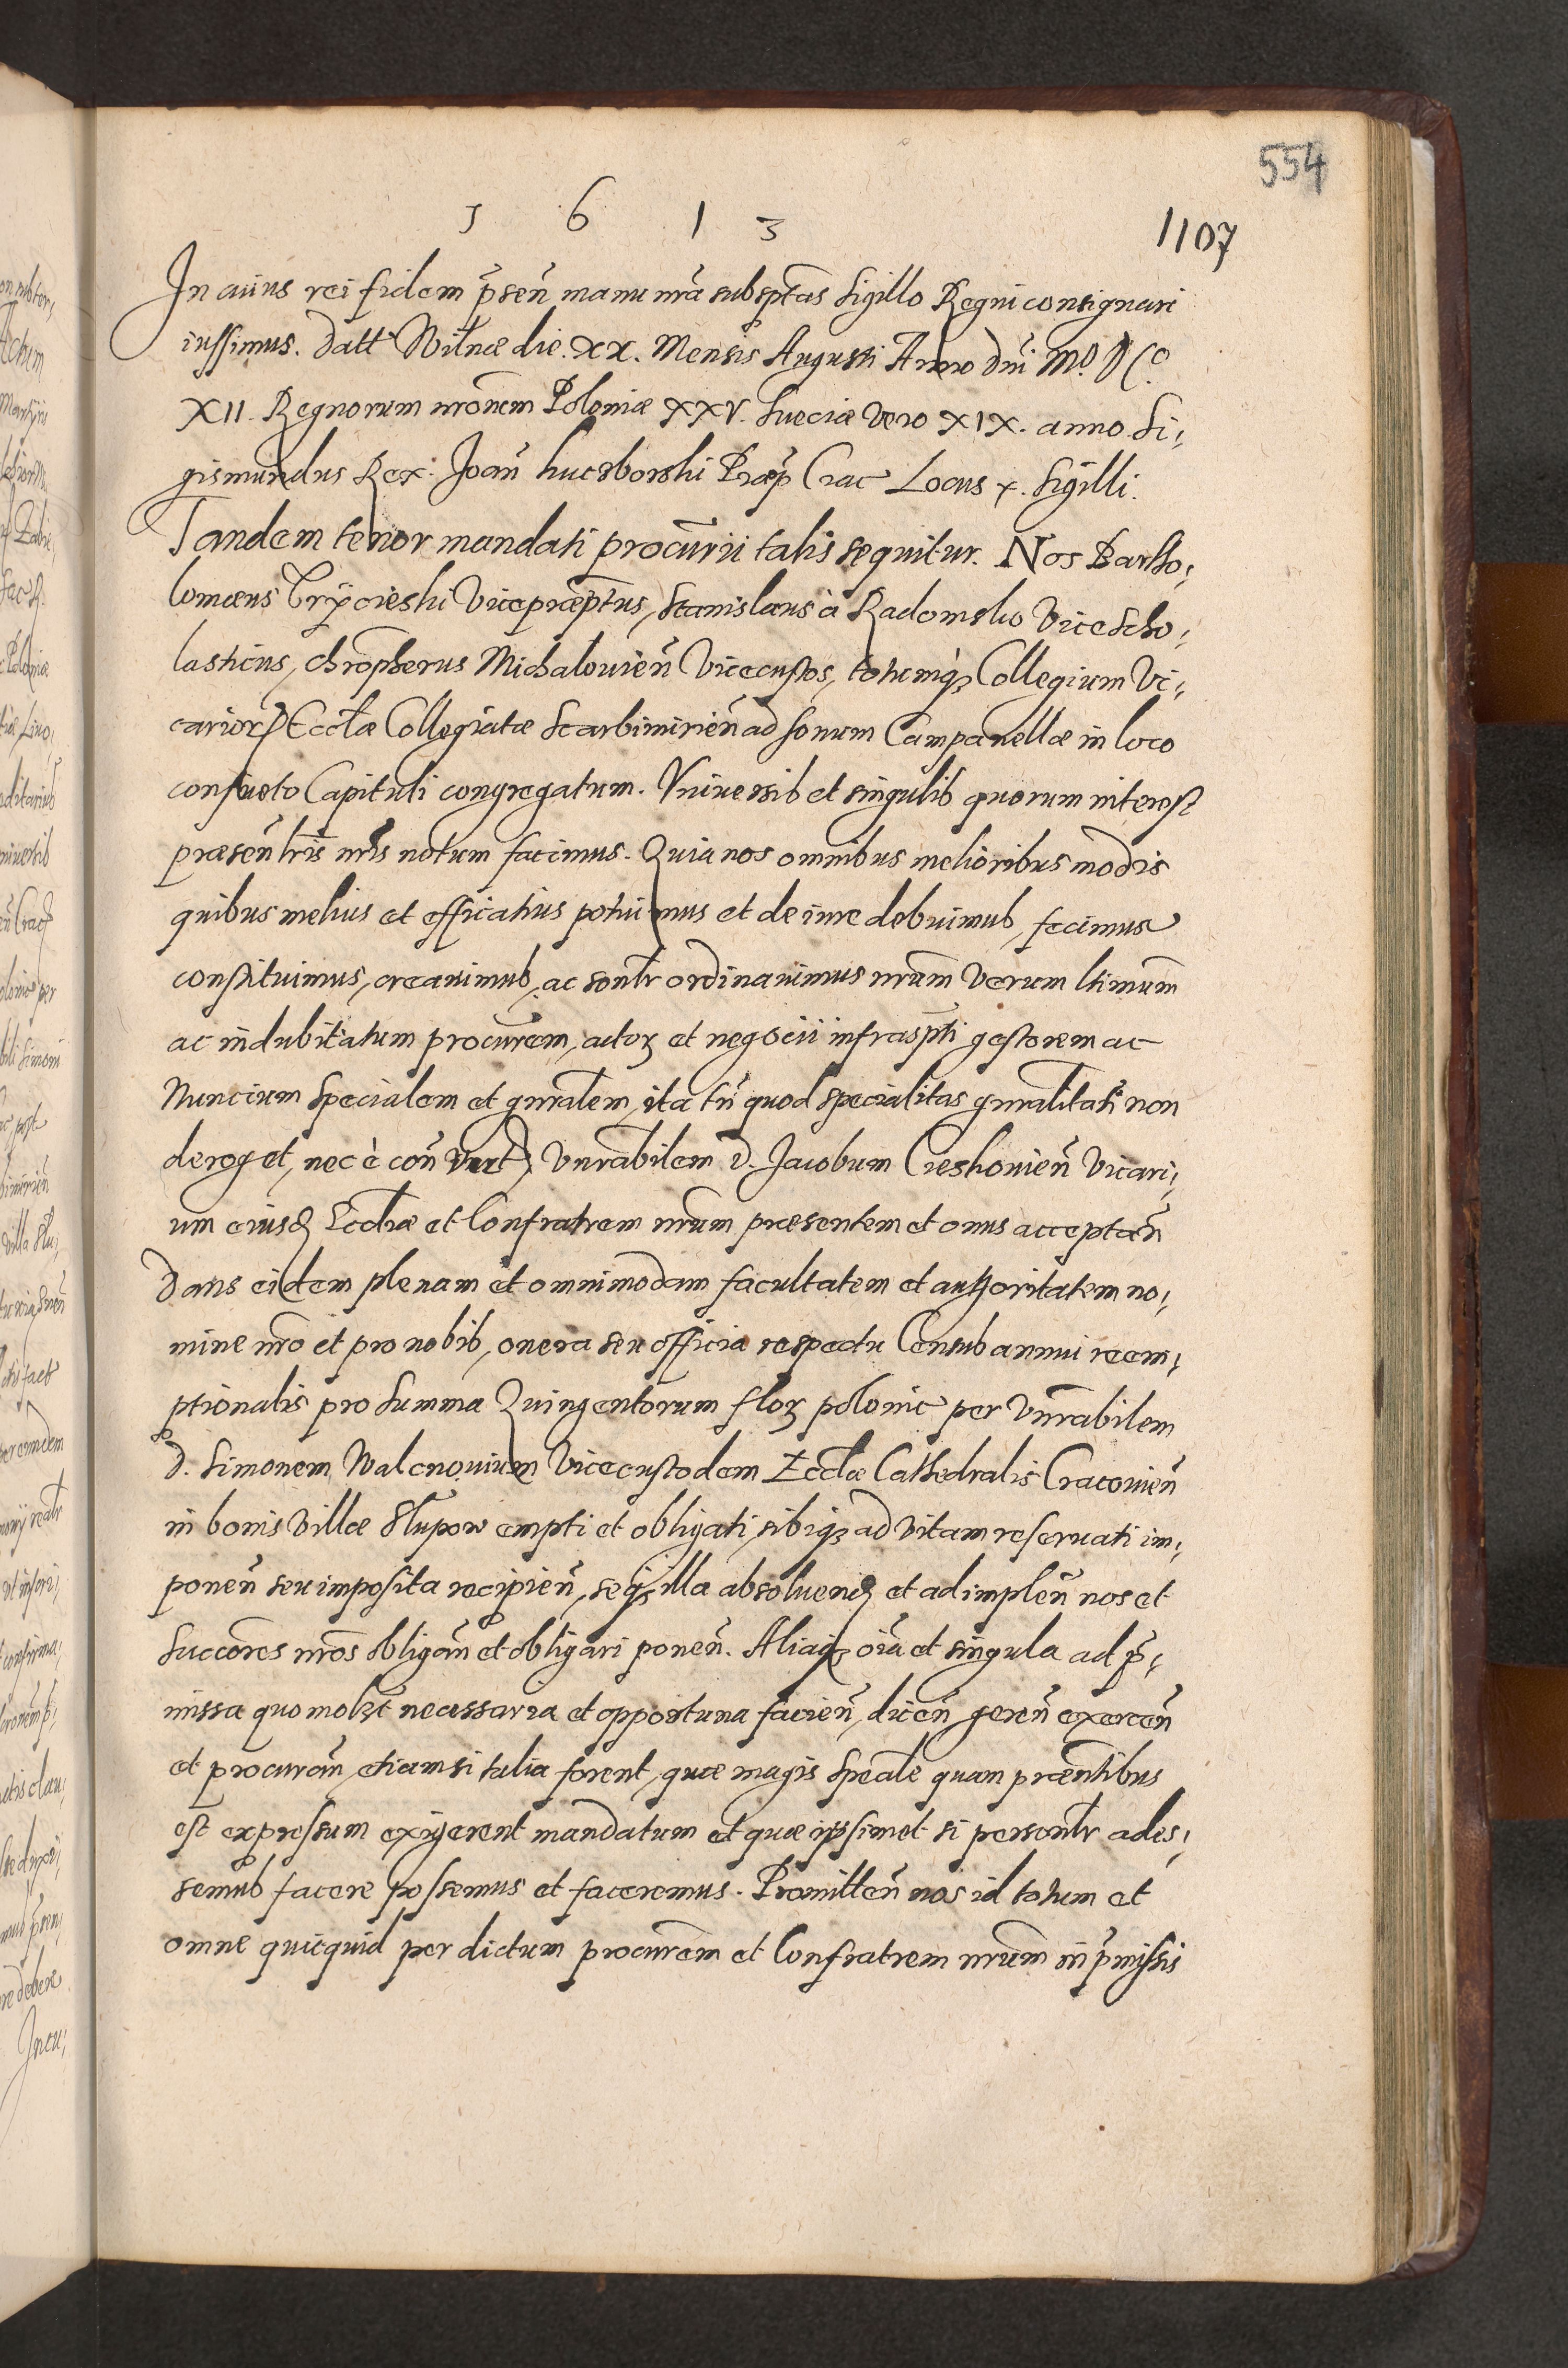 554
1 6 1 3
1107
In cuius rei fidem p̄sen̄ manu nr̄a subsp̄tas Sigillo Regni consignari
iussimus. Datt Wilnæ die. XX. Mensis Augusti Anno Dn̄i M.º DCº
XII. Regnorum nr̄orum Poloniæ XXV. Sueciæ vero XIX. anno. Si,
gismundus Rex. Joan̄ Kucborski Præp̄ Crac Locus x. Sigilli.
Tandem tenor mandati procurii talis sequitur. Nos Bartho,
lomæus Vicepræp̄tus, Stanislaus à Radomsko Vicescho,
lasticus, Chrop̄herus Michalouien̄ Vicecustos, totumq̨ Collegium Vi,
carior Eccl̄æ Collegiatæ Scarbimirien̄ ad sonum Campanellæ in loco
consueto Capituli congregatum. Vniuersib et singulib quorum interest
præsen̄ lr̄is nr̄is notum facimus. Quia nos omnibus melioribus modis
quibus melius et efficatius potuimus et de iure debuimub, fecimus
constituimus, creauimub, ac sontr ordinauimus nr̄um verum ltimum̄
ac indubitatum procur̄em, actoꝝ et negocii infrasp̄ti gestorem ac
Nuncium specialem et gnr̄alem, ita tn̄ quod specialitas gnr̄alitati non
deroget, nec è con̄ vert, Vnr̄abilem D. Jacobum Creskonien̄ Vicari,
um eiusd Eccl̄iæ et Confratrem nr̄um præsentem et onus acceptan̄
Dans eidem plenam et omnimodam facultatem et authoritatem no,
mine nr̄o et pro nobib, onera seu officia respectu Censub annui reem,
ptionalis pro summa Quingentorum floꝝ polonic per Vnr̄abilem
D. Simonem Vicecustodem Eccl̄æ Cathedralis Cracouien̄
in bonis Villæ Słupow empti et obligati, sibiq̨ ad vitam reseruati im,
ponen̄ seu imposita recipien̄, seq̨ illa absoluend et adimplen̄ nos et
Succores nr̄os obligan̄ et obligari ponen̄. Aliaq̨ oīa et singula ad p̄,
missa quomolꝫt necessaria et opportuna facien̄, dicen̄ geren̄ exercen̄
et procuran̄, etiamsi talia forent, quæ magis speāle quam præn̄tibus
est expressum exigerent mandatum et quæ ipsimet si persontr ades,
semub facere possemus et faceremus. Promitten̄ nos id totum et
omne quicquid per dictum procur̄em et Confratrem nr̄um in p̄missis